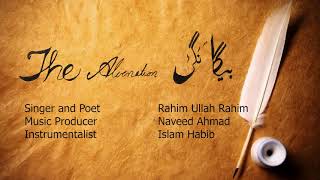 The Alienation بیگانگی
Singer and Poet Rahim Ullah Rahim
Music Producer Naveed Ahmad
Instrumentalist Islam Habib